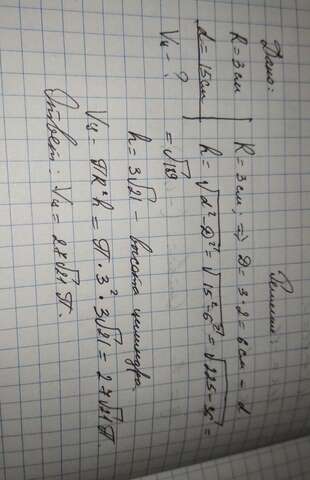 Дано:
R = 3 см
d = 15 см
Vц - ?
Решение:
R = 3 см; ⇒ D = 3 · 2 = 6 см - d
h = √d² - D² = √15² - 6² = √225 - 36 =
= √189
h = 3√21 - высота цилиндра
Vц - ПR²h = П · 3² · 3√21 = 27√21 П.
Ответ: Vц = 27√21 П.